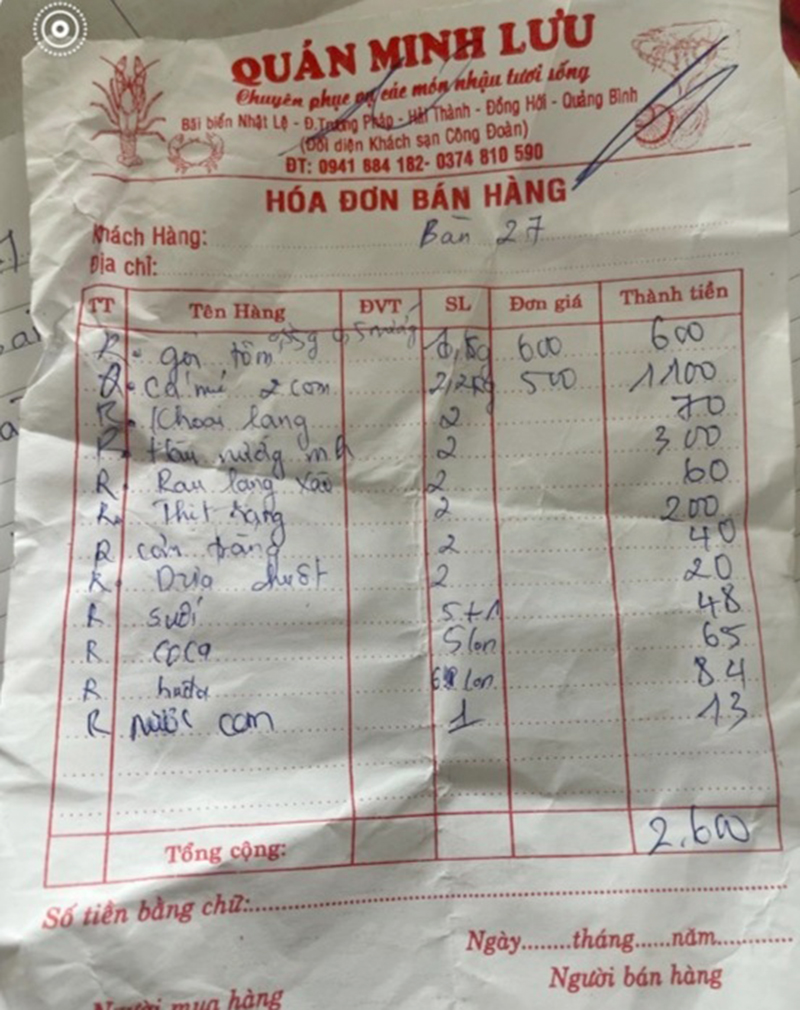 QUÁN MINH LƯU
Chuyên phục vụ các món nhậu tươi sống
Bãi biển Nhật Lệ - Đ.Trương Pháp - Hải Thành - Đồng Hới - Quảng Bình
(Đối diện Khách sạn Công Đoàn)
ĐT: 0941 884 182- 0374 810 590
HÓA ĐƠN BÁN HÀNG
Khách Hàng: Bàn 27
Địa chỉ:
TT Tên Hàng ĐVT SL Đơn giá Thành tiền
R. gỏi tôm 0,5g 0,5 nướng 600 600
R. cá mú 2 con 2,2kg 500 1100
R. Khoai lang 2 70
R. Hàu nướng mh 2 300
R. Rau lang xào 2 60
R. Thịt rang 2 200
R cơm trắng 2 40
R. Dưa chuột 2 20
R suối 5+1 48
R coca 5 lon 65
R huda lon 84
R nước cam 1 13
Tổng cộng: 2.600
Số tiền bằng chữ:
Ngày........tháng......năm............
Người bán hàng
Người mua hàng